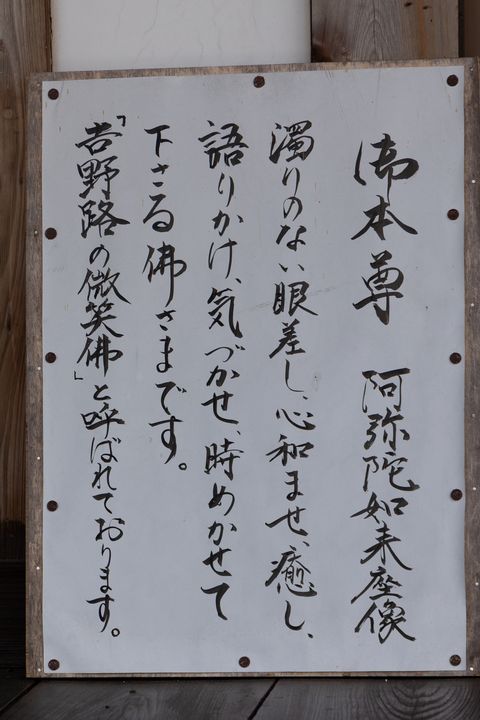 御本尊　阿弥陀如来座像
濁りのない眼差し、心和ませ、癒し、
語りかけ、気づかせ、時めかせて
下さる佛さまです。
「吉野路の微笑佛」と呼ばれております。